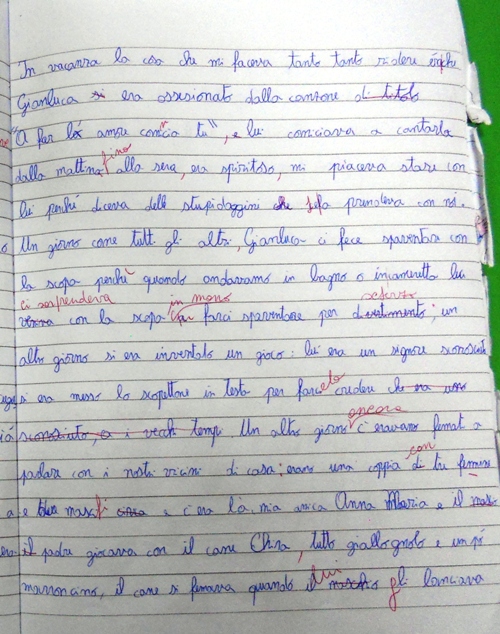 In vacanza la cosa che mi faceva tanto tanto ridere è che
Gianluca si era ossesionato dalla canzone di titolo
"A far l'amore comincia tu", e lui cominciava a cantarla
dalla mattina fino alla sera, era spiritoso, mi piaceva stare con
lui perché diceva delle stupidaggini che se la prendeva con noi.
Un giorno come tutti gli altri, Gianluca ci fece spaventare con
la scopa perché quando andavamo in bagno o in cameretta lui
ci sorprendeva in mano scherzo
con la scopa per farci spaventare per divertimento; un
altro giorno si era inventato un gioco: lui era un signore sconosciuto
si era messo lo scopettone in testa per farc credere che era uno
ancora
sconosciuto, a i vecchi tempi. Un altro giorno c'eravamo fermati a
con
parlare con i nostri vicini di casa: erano una coppia di tre femmine
a e due maschi e c'era là mia amica Anna Maria e il
il padre giocava con il cane Chira, tutto giallognolo e un pó
lui
marroncino, il cane si fermava quando il maschio gli lanciava